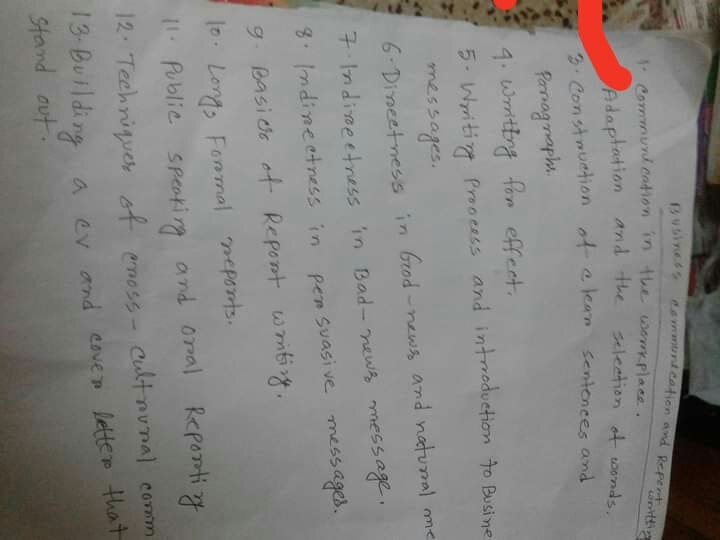 Business communication and Report
writting
1. Communication in the workplace.
Adaptation and the selection of words.
3. Construction of clean sentences and
Paragraphs.
4. Writting for effect.
5. Writing Process and introduction to Busine
messages.
6. Directness in Good-news and natural me
7. Indirectness in Bad-news message.
8. Indirectness in persuasive messages.
9. Basics of Report writing.
10. Long, Formal reports.
11. Public speaking and oral Reporting
12. Techniques of cross-cultural comm
13. Building a cv and cover letter that
stand out.